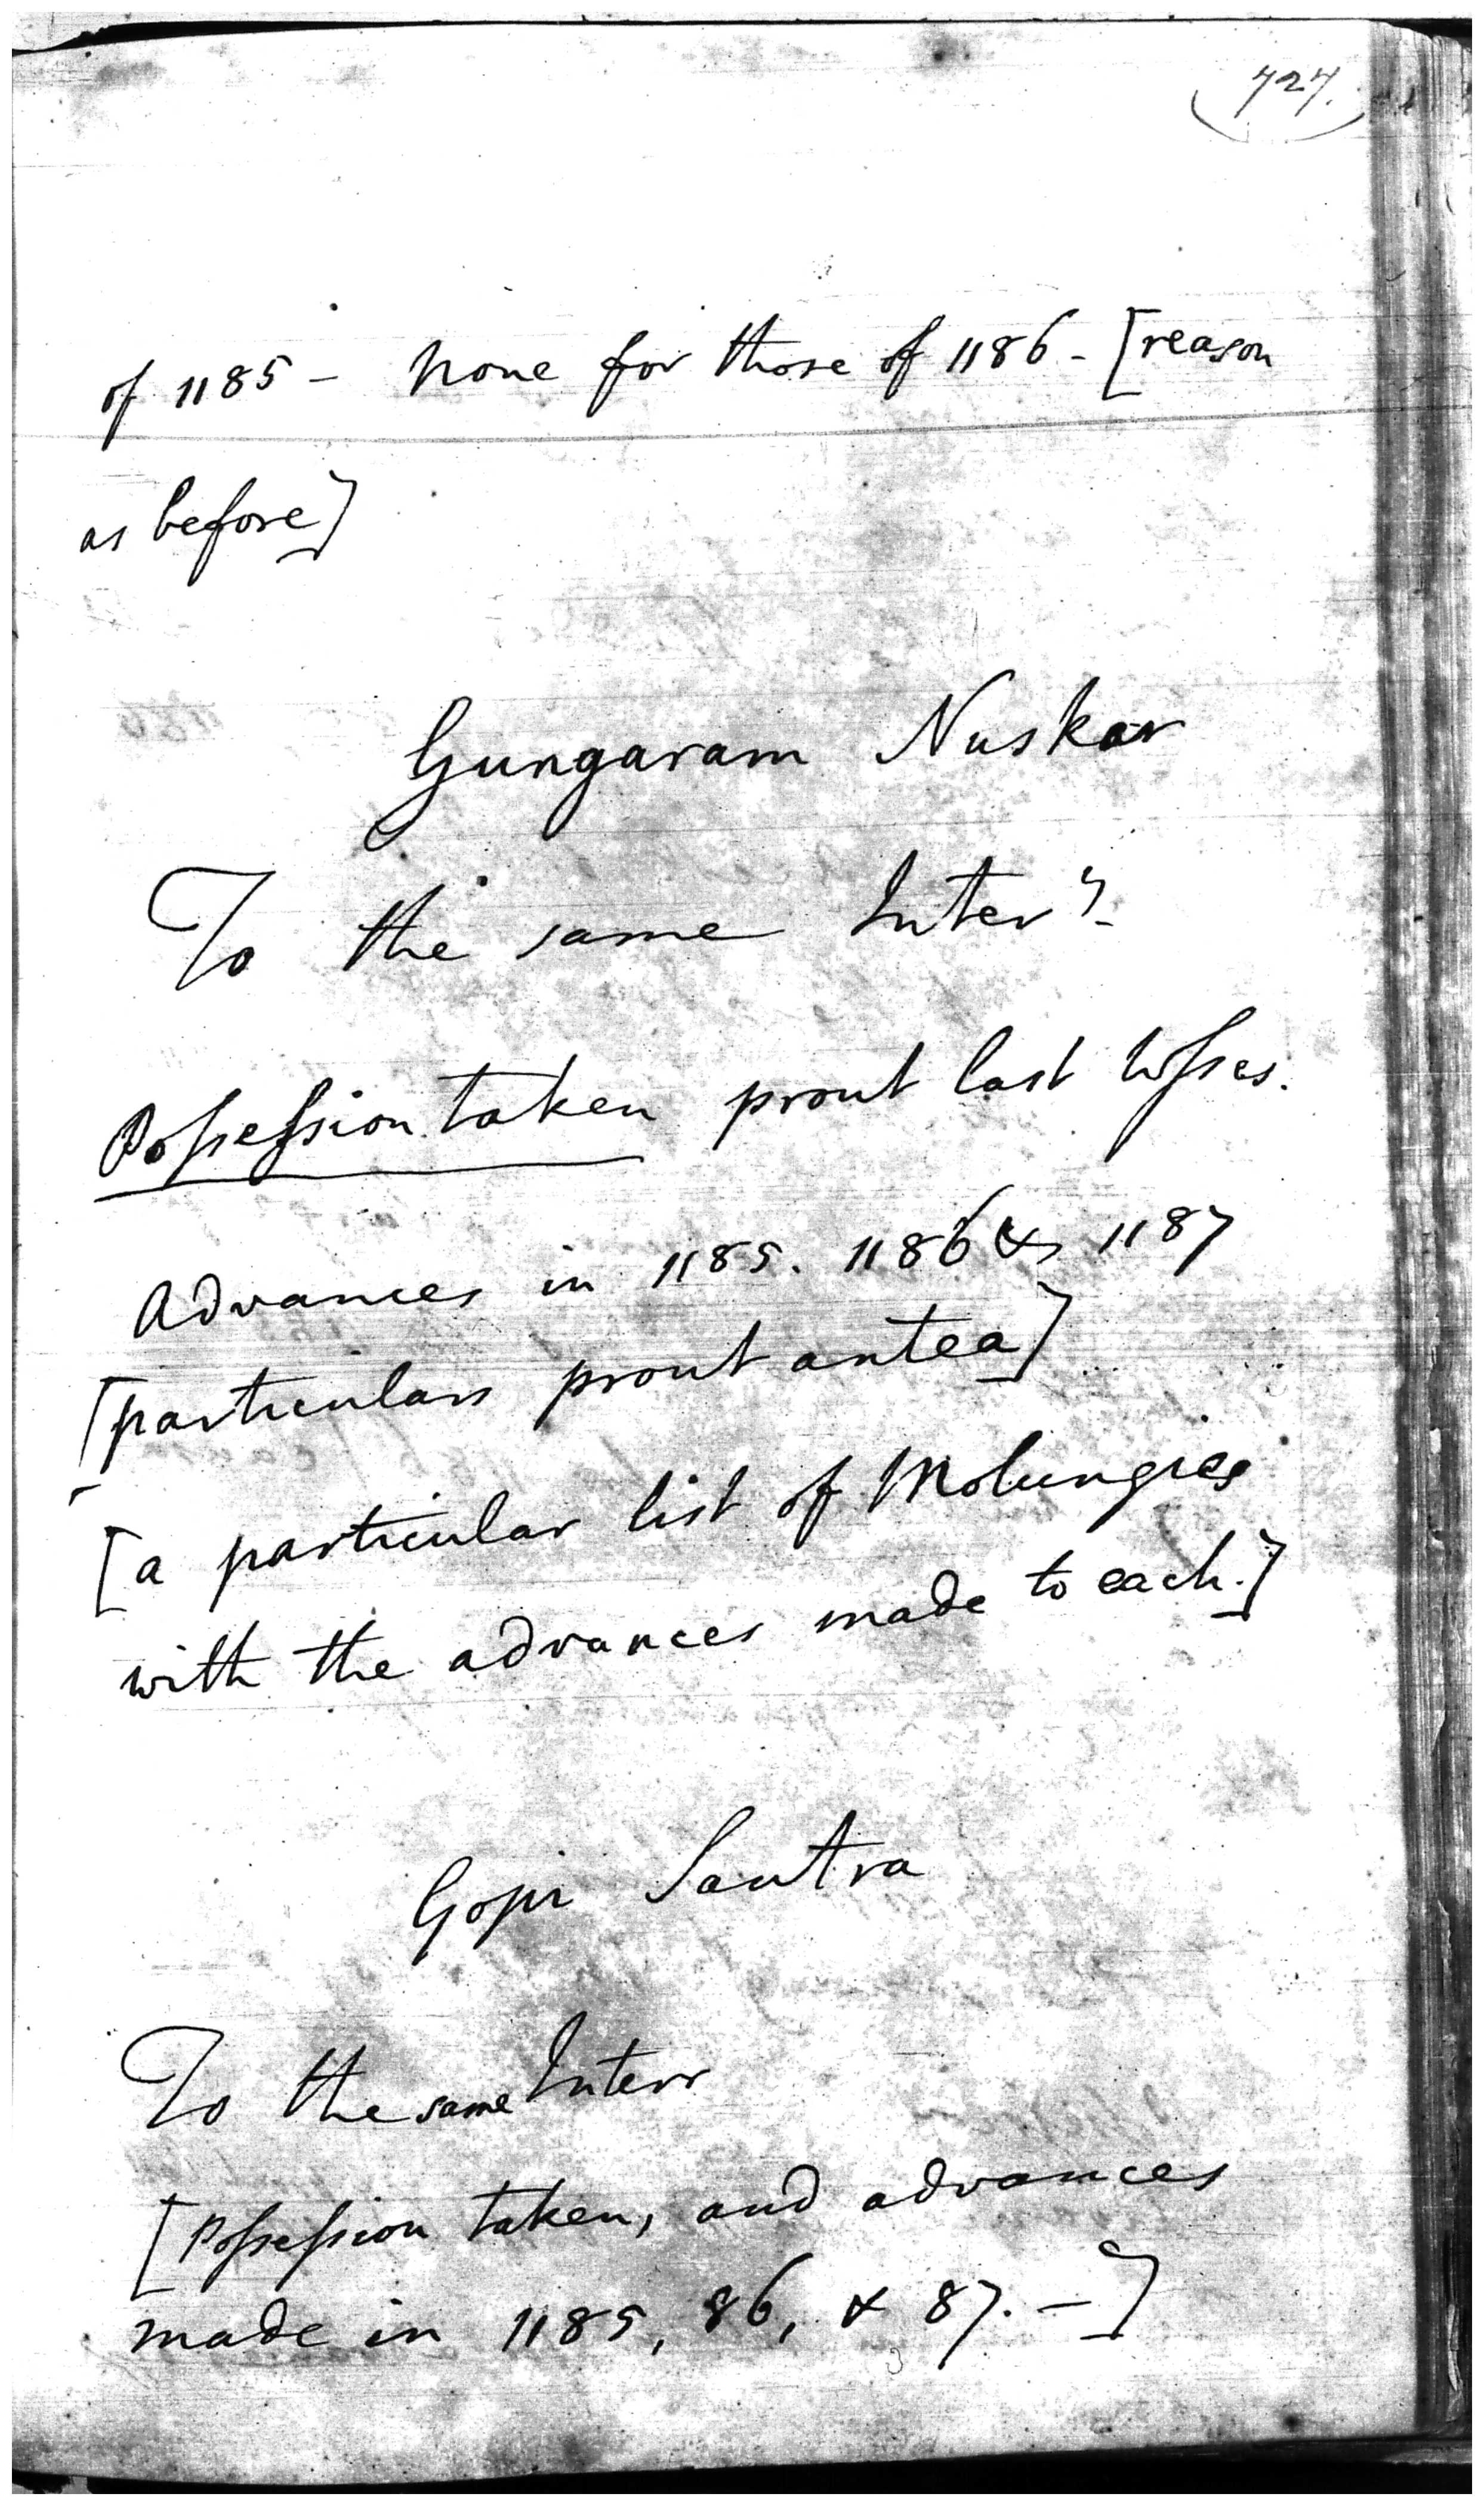 727.
of 1185 - None for those of 1186 - [reason
as before]
Gungaram Nuskar
To the same Interr.
Possession taken prout last Wsses.
Advances in 1185. 1186 & 1187
[particulars prout antea]
[a particular list of Molungies
with the advances made to each.]
Gopi Santra
To the same Interr
[Possession taken, and advances
made in 1185, 86, & 87. - ]